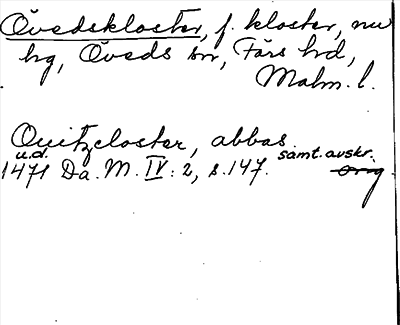 Övedskloster, f. kloster, nu
hg, Öveds sn, Färs hd,
Malm. l.
Ouitzcloster, abbas
u.d. samt. avskr.
1471 Da. M. IV: 2, s. 147. orig